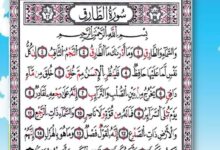 سُورَةُ الطَّارِقِ
بِسْمِ اللَّهِ الرَّحْمَٰنِ الرَّحِيمِ
وَالسَّمَاءِ وَالطَّارِقِ ١ وَمَا أَدْرَاكَ مَا الطَّارِقُ ٢ النَّجْمُ الثَّاقِبُ ٣ إِن كُلُّ
نَفْسٍ لَّمَّا عَلَيْهَا حَافِظٌ ٤ فَلْيَنظُرِ الْإِنسَانُ مِمَّ خُلِقَ ٥ خُلِقَ مِن مَّاءٍ
دَافِقٍ ٦ يَخْرُجُ مِن بَيْنِ الصُّلْبِ وَالتَّرَائِبِ ٧ إِنَّهُ عَلَىٰ رَجْعِهِ لَقَادِرٌ ٨
يَوْمَ تُبْلَى السَّرَائِرُ ٩ فَمَا لَهُ مِن قُوَّةٍ وَلَا نَاصِرٍ ١٠ وَالسَّمَاءِ ذَاتِ الرَّجْعِ ١١
وَالْأَرْضِ ذَاتِ الصَّدْعِ ١٢ إِنَّهُ لَقَوْلٌ فَصْلٌ ١٣ وَمَا هُوَ بِالْهَزْلِ ١٤